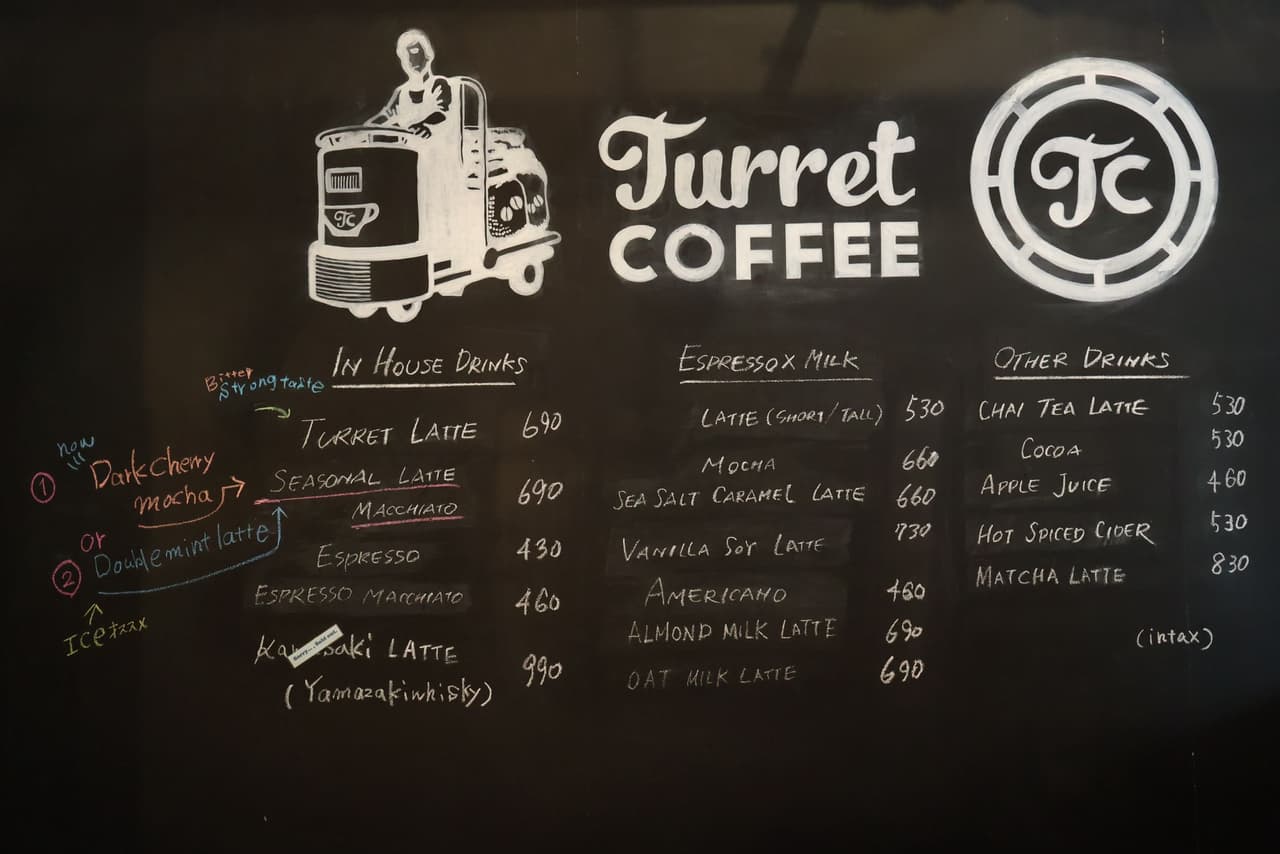 Turret
COFFEE
TC
TC
IN HOUSE DRINKS
Bitter
Strong taste
TURRET LATTE 690
now
① Dark Cherry
mocha
SEASONAL LATTE
MACCHIATO 690
or
② Double mint latte
Iceオススメ
ESPRESSO 430
ESPRESSO MACCHIATO 460
saki LATTE 990
Sorry... Sold out.
(Yamazakiwhisky)
ESPRESSO X MILK
LATTE (SHORT/TALL) 530
MOCHA 660
SEA SALT CARAMEL LATTE 660
VANILLA SOY LATTE 730
AMERICANO 460
ALMOND MILK LATTE 690
OAT MILK LATTE 690
OTHER DRINKS
CHAI TEA LATTE 530
COCOA 530
APPLE JUICE 460
HOT SPICED CIDER 530
MATCHA LATTE 830
(intax)